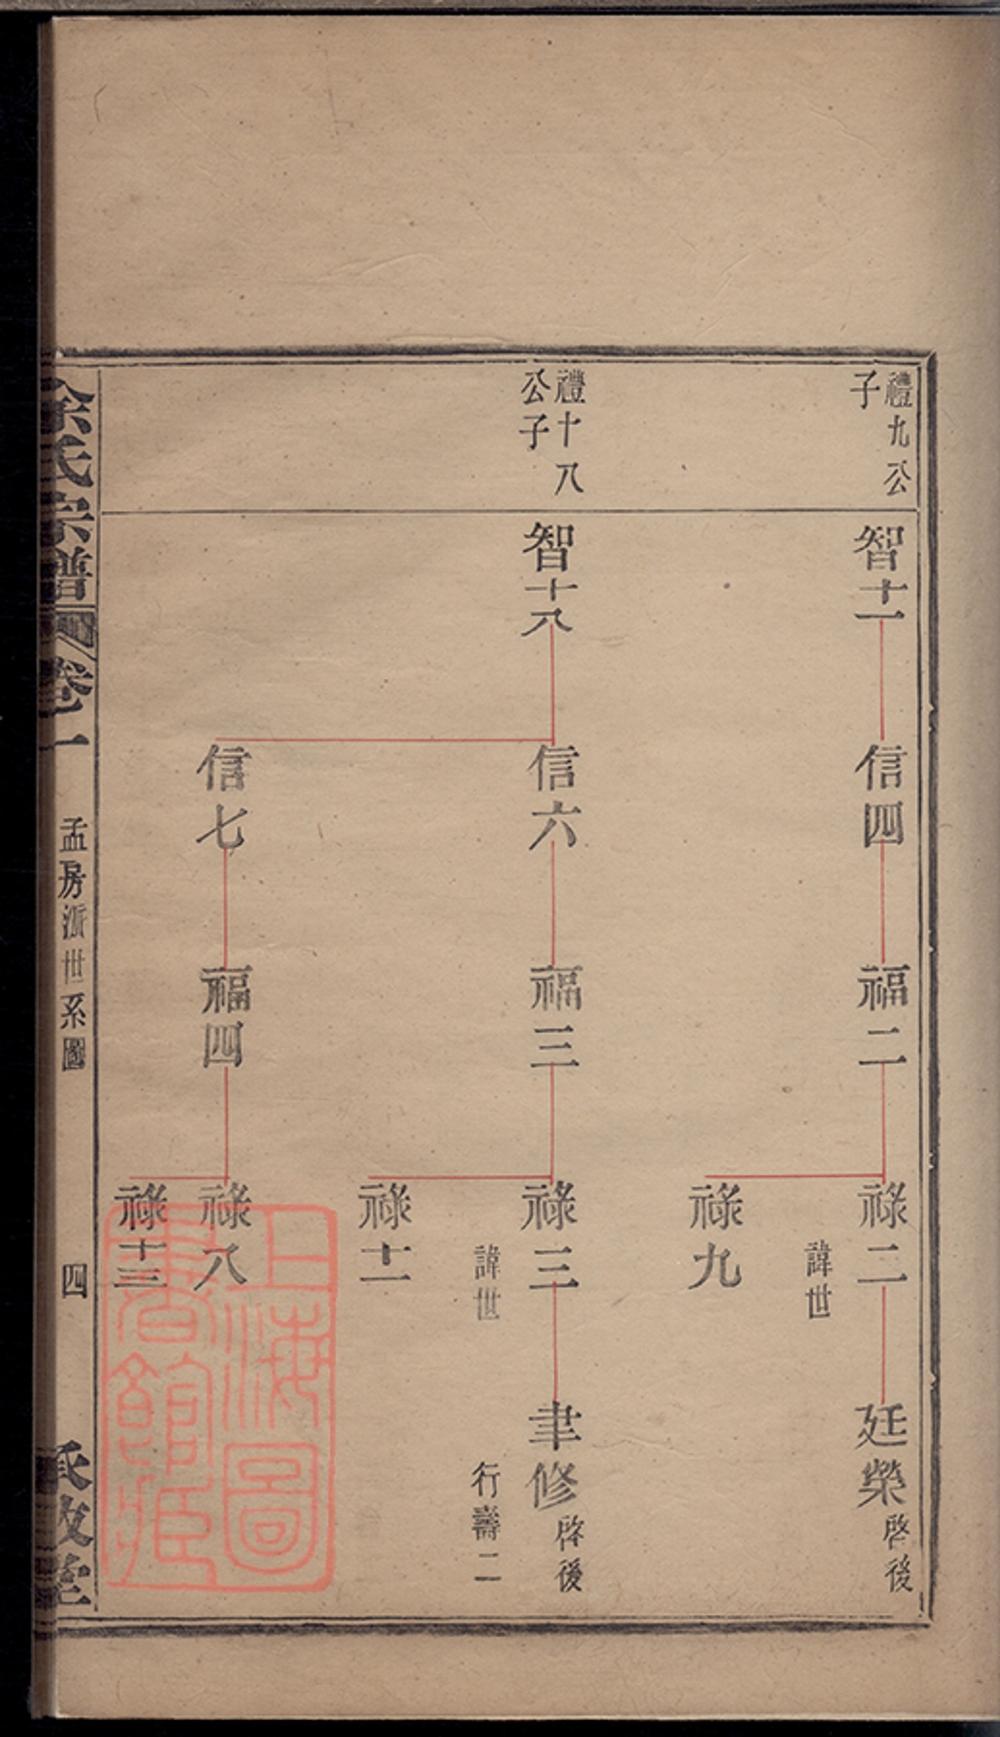 禮九公
子
禮十八
公子
智十一
智十八
信四
信六
信七
福二
福三
福四
祿二
諱世
祿九
祿三
諱世
祿十一
祿八
祿十三
廷榮
啓後
聿修
啓後
行壽二
徐氏宗譜
卷一
孟房派世系圖
四
上海圖
書館藏